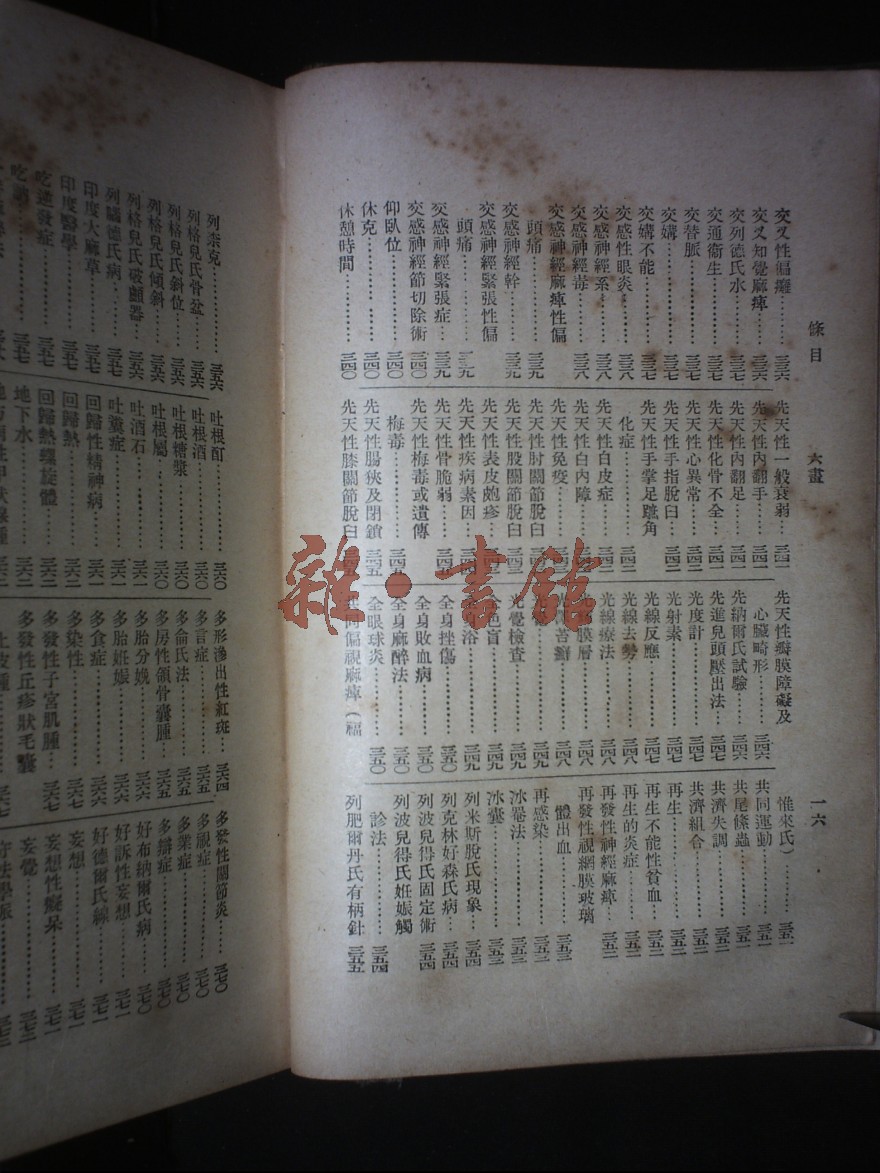 條目 六畫 一六
交叉性偏癱……三三六
交叉知覺麻痺……三三六
交列德氏水……三三七
交通衞生……三三七
交替脈……三三七
交媾……三三七
交媾不能……三三七
交感性眼炎……三三八
交感神經系……三三八
交感神經毒……三三八
交感神經麻痺性偏
頭痛……三三九
交感神經幹……三三九
交感神經緊張性偏
頭痛……三三九
交感神經緊張症……三三九
交感神經節切除術……三四〇
仰臥位……三四〇
休克……三四〇
休憩時間……三四〇
先天性一般衰弱……三四一
先天性內翻手……三四一
先天性內翻足……三四一
先天性化骨不全……三四一
先天性心異常……三四一
先天性手指脫臼……三四一
先天性手掌足蹠角
化症……三四二
先天性白皮症……三四二
先天性白內障……三四二
先天性免疫……三四二
先天性肘關節脫臼……三四二
先天性股關節脫臼……三四二
先天性表皮皰疹
先天性疾病素因
先天性骨脆弱
先天性梅毒或遺傳
梅毒……三四五
先天性腸狹及閉鎖……三四五
先天性膝關節脫臼
先天性瓣膜障礙及
心臟畸形……三四六
先納爾氏試驗……三四六
先進兒頭壓出法……三四七
光度計……三四七
光射素……三四七
光線反應……三四七
光線去勢……三四八
光線療法……三四八
膜層……三四八
苔癬……三四八
覺……三四九
光覺檢查……三四九
全色盲……三四九
全身浴……三四九
全身挫傷……三五〇
全身敗血病……三五〇
全身麻醉法……三五〇
全眼球炎……三五〇
共同偏視麻痺（福
惟來氏）……三五一
共同運動……三五一
共尾絛蟲……三五一
共濟失調……三五一
共濟組合……三五一
再生……三五二
再生不能性貧血……三五二
再生的炎症……三五二
再發性神經麻痺……三五二
再發性視網膜玻璃
體出血……三五三
再感染……三五三
冰罨法……三五三
冰囊……三五三
列米斯脫氏現象……三五四
列克林好森氏病……三五四
列波兒得氏固定術……三五四
列波兒得氏妊娠觸
診法……三五四
列肥爾丹氏有柄針……三五五
列柰克……三五六
列格兒氏骨盆……三五六
列格兒氏斜位……三五六
列格兒氏傾斜……三五六
列格兒氏破顱器……三五六
列騷德氏病……三五七
印度大麻草……三五七
印度醫學……三五七
吃逆發症……三五七
三五七
吐根酊……三六〇
吐根酒……三六〇
吐根糖漿……三六〇
吐根屬……三六〇
吐酒石……三六一
吐糞症……三六一
回歸性精神病……三六一
回歸熱……三六一
回歸熱螺旋體……三六二
地下水……三六二
多形滲出性紅斑……三六四
多言症……三六五
多侖氏法……三六五
多房性頜骨囊腫……三六六
多胎分娩……三六六
多胎妊娠……三六六
多食症……三六六
多染性……三六七
多發性子宮肌腫……三六七
多發性丘疹狀毛囊
上皮腫……三六七
多發性關節炎……三七〇
多視症……三七〇
多業症……三七〇
多辯症……三七〇
好布納爾氏病……三七〇
好訴性妄想……三七一
好德爾氏線……三七一
妄想……三七一
妄想性癡呆……三七一
妄覺……三七二
雜·書館